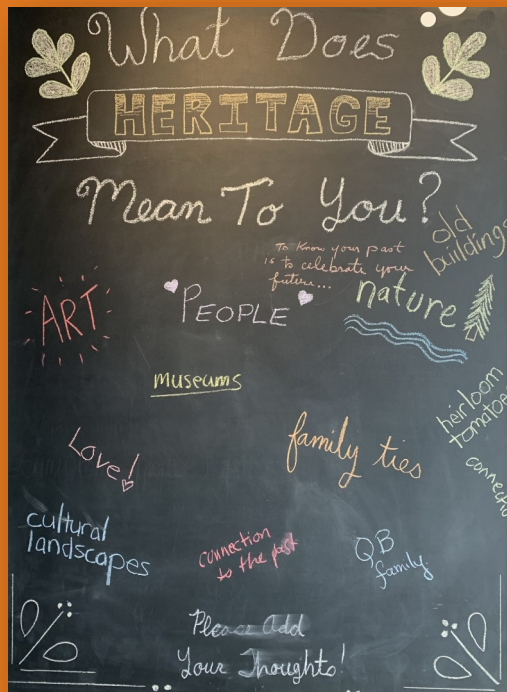 What Does
HERITAGE
Mean To You?
old
buildings
To Know your past
is to celebrate your
future...
nature
ART
PEOPLE
museums
heirloom
tomatoes
family ties
Love!
cultural
landscapes
connection
to the past
QB
family
Please Add
Your Thoughts!